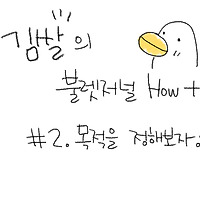 김쌀의
불렛저널 How t
#2. 목적을 정해보자.